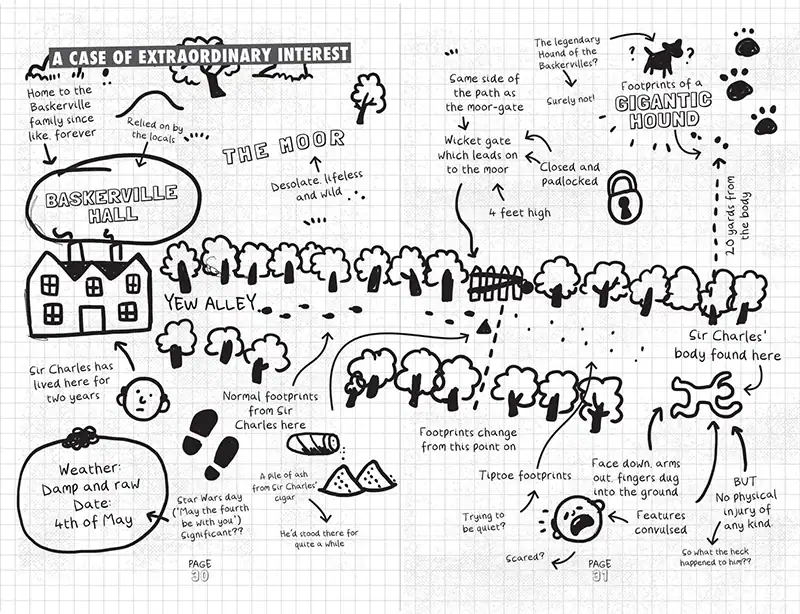 A CASE OF EXTRAORDINARY INTEREST
Home to the
Baskerville
family since
like, forever
Relied on by
the locals
THE MOOR
Desolate, lifeless
and wild
BASKERVILLE
HALL
YEW ALLEY
Sir Charles has
lived here for
two years
Normal footprints
from Sir
Charles here
Weather:
Damp and raw
Date:
4th of May
Star Wars day
("May the fourth
be with you")
Significant??
A pile of ash
from Sir Charles'
cigar
He'd stood there for
quite a while
PAGE
30
Same side of
the path as
the moor-gate
Wicket gate
which leads on
to the moor
Closed and
padlocked
4 feet high
The legendary
Hound of the
Baskervilles?
Surely not!
? ?
Footprints of a
GIGANTIC
HOUND
20 yards from
the body
Sir Charles'
body found here
Footprints change
from this point on
Tiptoe footprints
Trying to
be quiet?
Scared?
Face down, arms
out, fingers dug
into the ground
Features
convulsed
BUT
No physical
injury of
any kind
So what the heck
happened to him??
PAGE
31